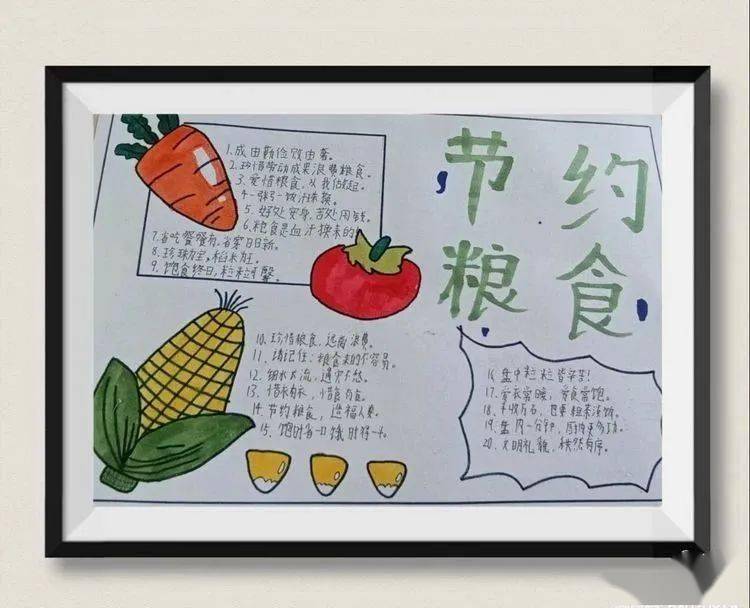 节约
粮食
1. 成由勤俭败由奢。
2. 珍惜劳动成果浪费粮食。
3. 爱惜粮食,从我做起。
4. 一粥一饭汗珠换。
5. 好处安身,苦处用钱。
6. 粮食是血汗换来的
7. 省吃餐餐有,省穿日日新。
8. 珍珠为宝,稻米为王。
9. 饱食终日,粒粒可馨。
10. 珍惜粮食,远离浪费。
11. 请记住:粮食来的不容易。
12. 细水长流,遇灾不愁。
13. 惜衣有衣,惜食有食。
14. 节约粮食,造福人类。
15. 饱时省一口饿时得一斗。
16. 盘中粒粒皆辛苦!
17. 爱衣常暖,爱食常饱。
18. 丰收万石,粗茶淡饭。
19. 盘内一分钟,
20. 文明礼貌,秩然有序。